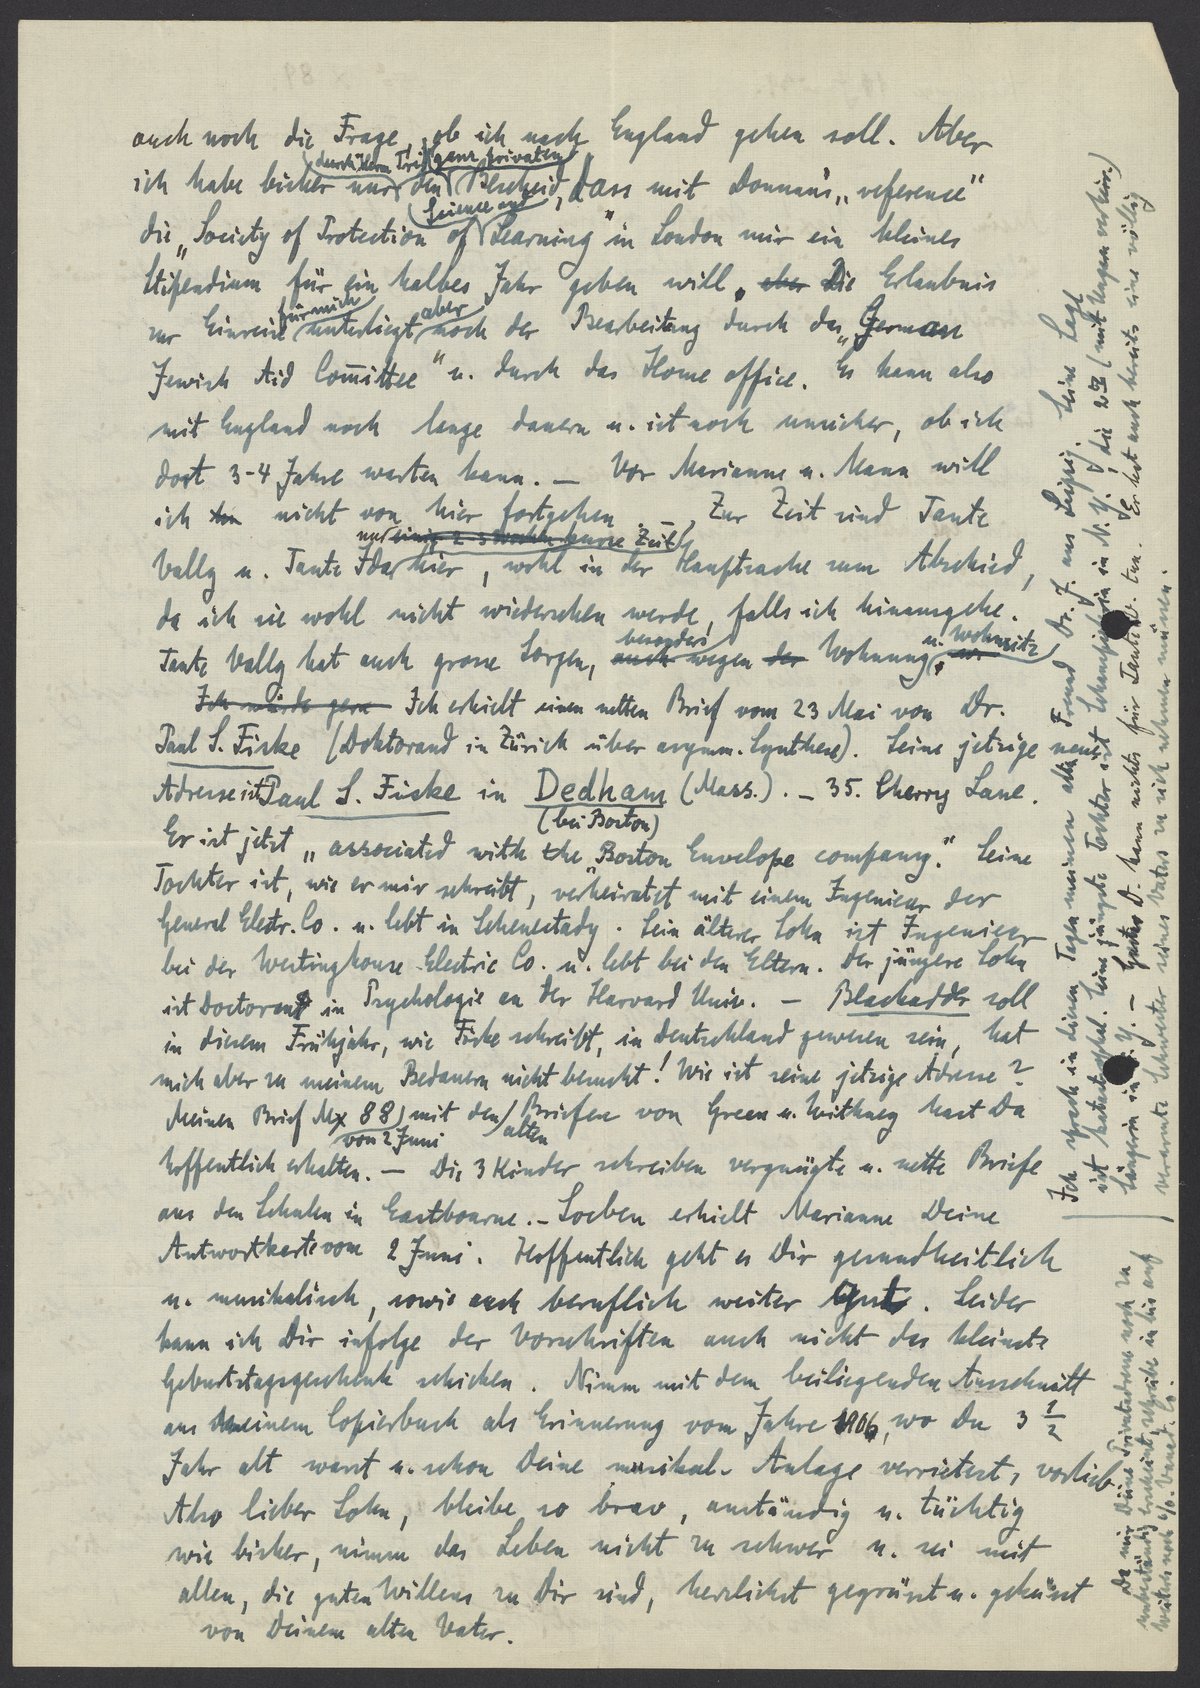 auch noch die Frage, ob ich nach England gehen soll. Aber
ich habe bisher nur (durch Herrn) den (ganz privaten) Bescheid, dass mit Donnan's „reference"
die „Society of Protection of (Science and) Learning" in London mir ein kleines
Stipendium für ein halbes Jahr geben will. aber Die Erlaubnis
zur Einreise für mich unterliegt aber noch der Bearbeitung durch das „German
Jewish Aid Committee" u. durch das Home office. Es kann also
mit England noch lange dauern u. ist noch unsicher, ob ich
dort 3-4 Jahre warten kann. — Vor Marianne u. Mann will
ich nicht von hier fortgehen. — Zur Zeit sind Tante
Vally u. Tante Ida nur einige 2-3 Wochen kurze Zeit hier, wohl in der Hauptsache zum Abschied,
da ich sie wohl nicht wiedersehen werde, falls ich hinausgehe.
Tante Vally hat auch grosse Sorgen, auch besonders wegen der Wohnung u. Wohnsitz
Ich würde gern Ich erhielt einen netten Brief vom 23 Mai von Dr.
Paul S. Fiske (Doktorand in Zürich über asymm. Synthese). Seine jetzige neue
Adresse ist Paul S. Fiske in Dedham (Mass.). — 35. Cherry Lane.
(bei Boston)
Er ist jetzt „associated with the "Boston Envelope company." Seine
Tochter ist, wie er mir schreibt, verheiratet mit einem Ingenieur der
General Electr. Co. u. lebt in Schenectady. Sein älterer Sohn ist Ingenieur
bei der Westinghouse Electric Co. u. lebt bei den Eltern. Der jüngere Sohn
ist Doctorand in Psychologie an der Harvard Univ. — Blackadder soll
in diesem Frühjahr, wie Fiske schreibt, in Deutschland gewesen sein, hat
mich aber zu meinem Bedauern nicht besucht! Wie ist seine jetzige Adresse?
Meinen Brief Mx 88 (von 2 Juni) mit den alten Briefen von Green u. Withney hast Du
hoffentlich erhalten. — Die 3 Kinder schreiben vergnügte u. nette Briefe
aus den Schulen in Eastbourne. — Soeben erhielt Marianne Deine
Antwortkarte vom 2 Juni. Hoffentlich geht es Dir gesundheitlich
u. musikalisch, sowie auch beruflich weiter gut. Leider
kann ich Dir infolge der Vorschriften auch nicht das kleinste
Geburtstagsgeschenk schicken. Nimm mit dem beiliegenden Ausschnitt
aus meinem Copierbuch als Erinnerung vom Jahre 1906, wo Du 3 1/2
Jahr alt warst u. schon Deine musikal. Anlage verrietest, vorlieb.
Also lieber Sohn, bleibe so brav, anständig u. tüchtig
wie bisher, nimm das Leben nicht zu schwer u. sei mit
allen, die guten Willens zu Dir sind, herzlichst gegrüsst u. geküsst
von Deinem alten Vater.
Ich sprach in diesen Tagen meinen alten Freund Dr. J. aus Leipzig. Seine Lage
ist katastrophal. Seine jüngste Tochter ist Schauspielerin in N.Y., die 2te (mit Ungarn verheir.)
Sängerin in N.Y. — D. kann nichts für tun. Er hat auch bereits eine völlig
verarmte Schwester seines Vaters zu sich nehmen müssen.
Da mir Deine Privatadresse noch zu
unbeständig erscheint, schreibe ich bis auf
Weiteres noch c/o.